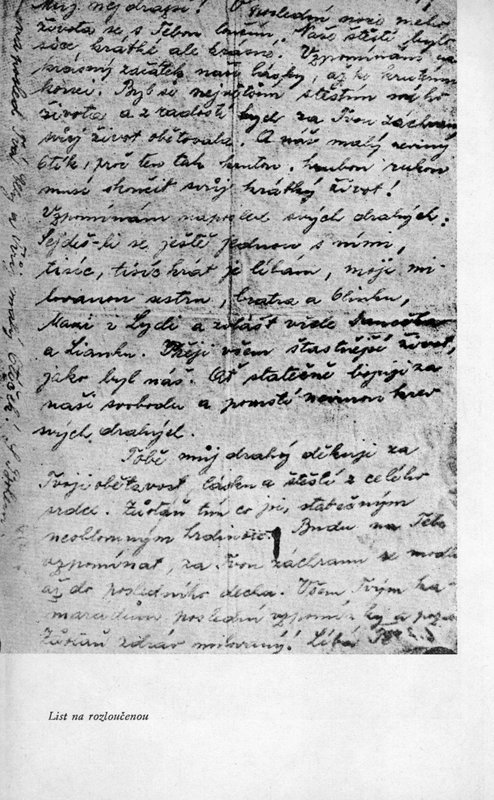 Můj nejdražší! V poslední noci mého
života se s Tebou loučím. Naše štěstí bylo
sice krátké ale krásné. Vzpomínám na
krásný začátek naší lásky, až ke krutému
konci. Byl bo nejvěším stěstím mého
života a z radostí bych za Tvou záchranu
svůj život obětovala. A náš malý nevinný
6tík, proč ten tak krutou, hrubou rukou
musí skončit svůj krátký život!
Vzpomínám naposled svých drahých.
Sejdeš-li se ještě jednou s nimi,
tisíc, tisíckrát je líbám, moji mi-
lovanou sestru, bratra a
Maxi z Lydi a zvlášt vřele
a Lianku. Přeji všem šťastnější život,
jako byl náš. Ať statečně bojují za
naši svobodu a pomstí nevinnou krev
svých drahých.
Tobě můj drahý děkuji za
Tvoji obětavost lásku a štěstí z celého
srdce. Zůstaň tím co jsi, statečným
neoblomným hrdinou. Budu na Tebe
vzpomínat, za Tvou záchranu se modlit
až do posledního dechu. Všem Tvým ka-
marádům poslední vzpomínky a pozdrav
Zůstaň zdráv milovaný! Líbá Tě
List na rozloučenou